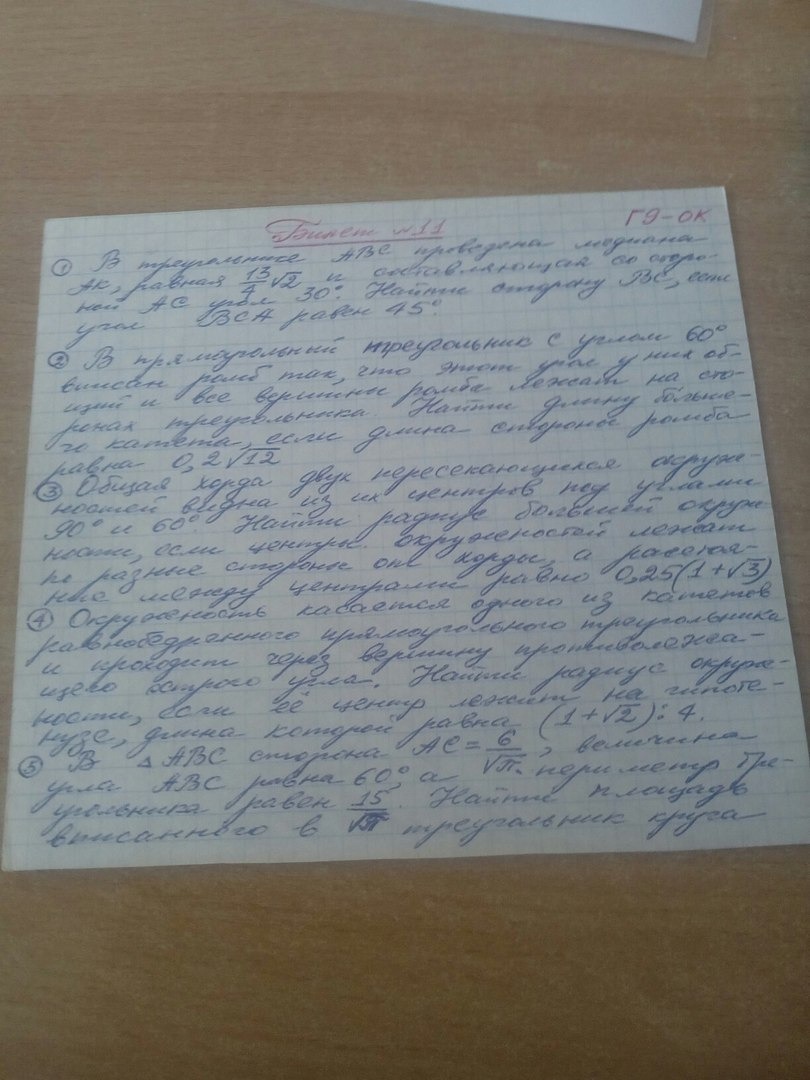 Билет №11
Г9-ОК
① В треугольнике ABC проведена медиана
AK, равная 13/4 √2 и составляющая со сторо-
ной AC угол 30°. Найти сторону BC, если
угол BCA равен 45°.
② В прямоугольный треугольник с углом 60°
вписан ромб так, что этот угол у них об-
щий и все вершины ромба лежат на сто-
ронах треугольника. Найти длину больше-
го катета, если длина стороны ромба
равна 0,2√12
③ Общая хорда двух пересекающихся окруж-
ностей видна из их центров под углами
90° и 60°. Найти радиус большей окруж-
ности, если центры окружностей лежат
по разные стороны от хорды, а расстоя-
ние между центрами равно 0,25(1+√3)
④ Окружность касается одного из катетов
равнобедренного прямоугольного треугольника
и проходит через вершину противолежа-
щего острого угла. Найти радиус окруж-
ности, если её центр лежит на гипоте-
нузе, длина которой равна (1+√2):4.
⑤ В △ABC сторона AC = 6/√π, величина
угла ABC равна 60°, а периметр тре-
угольника равен 15/√π. Найти площадь
вписанного в треугольник круга